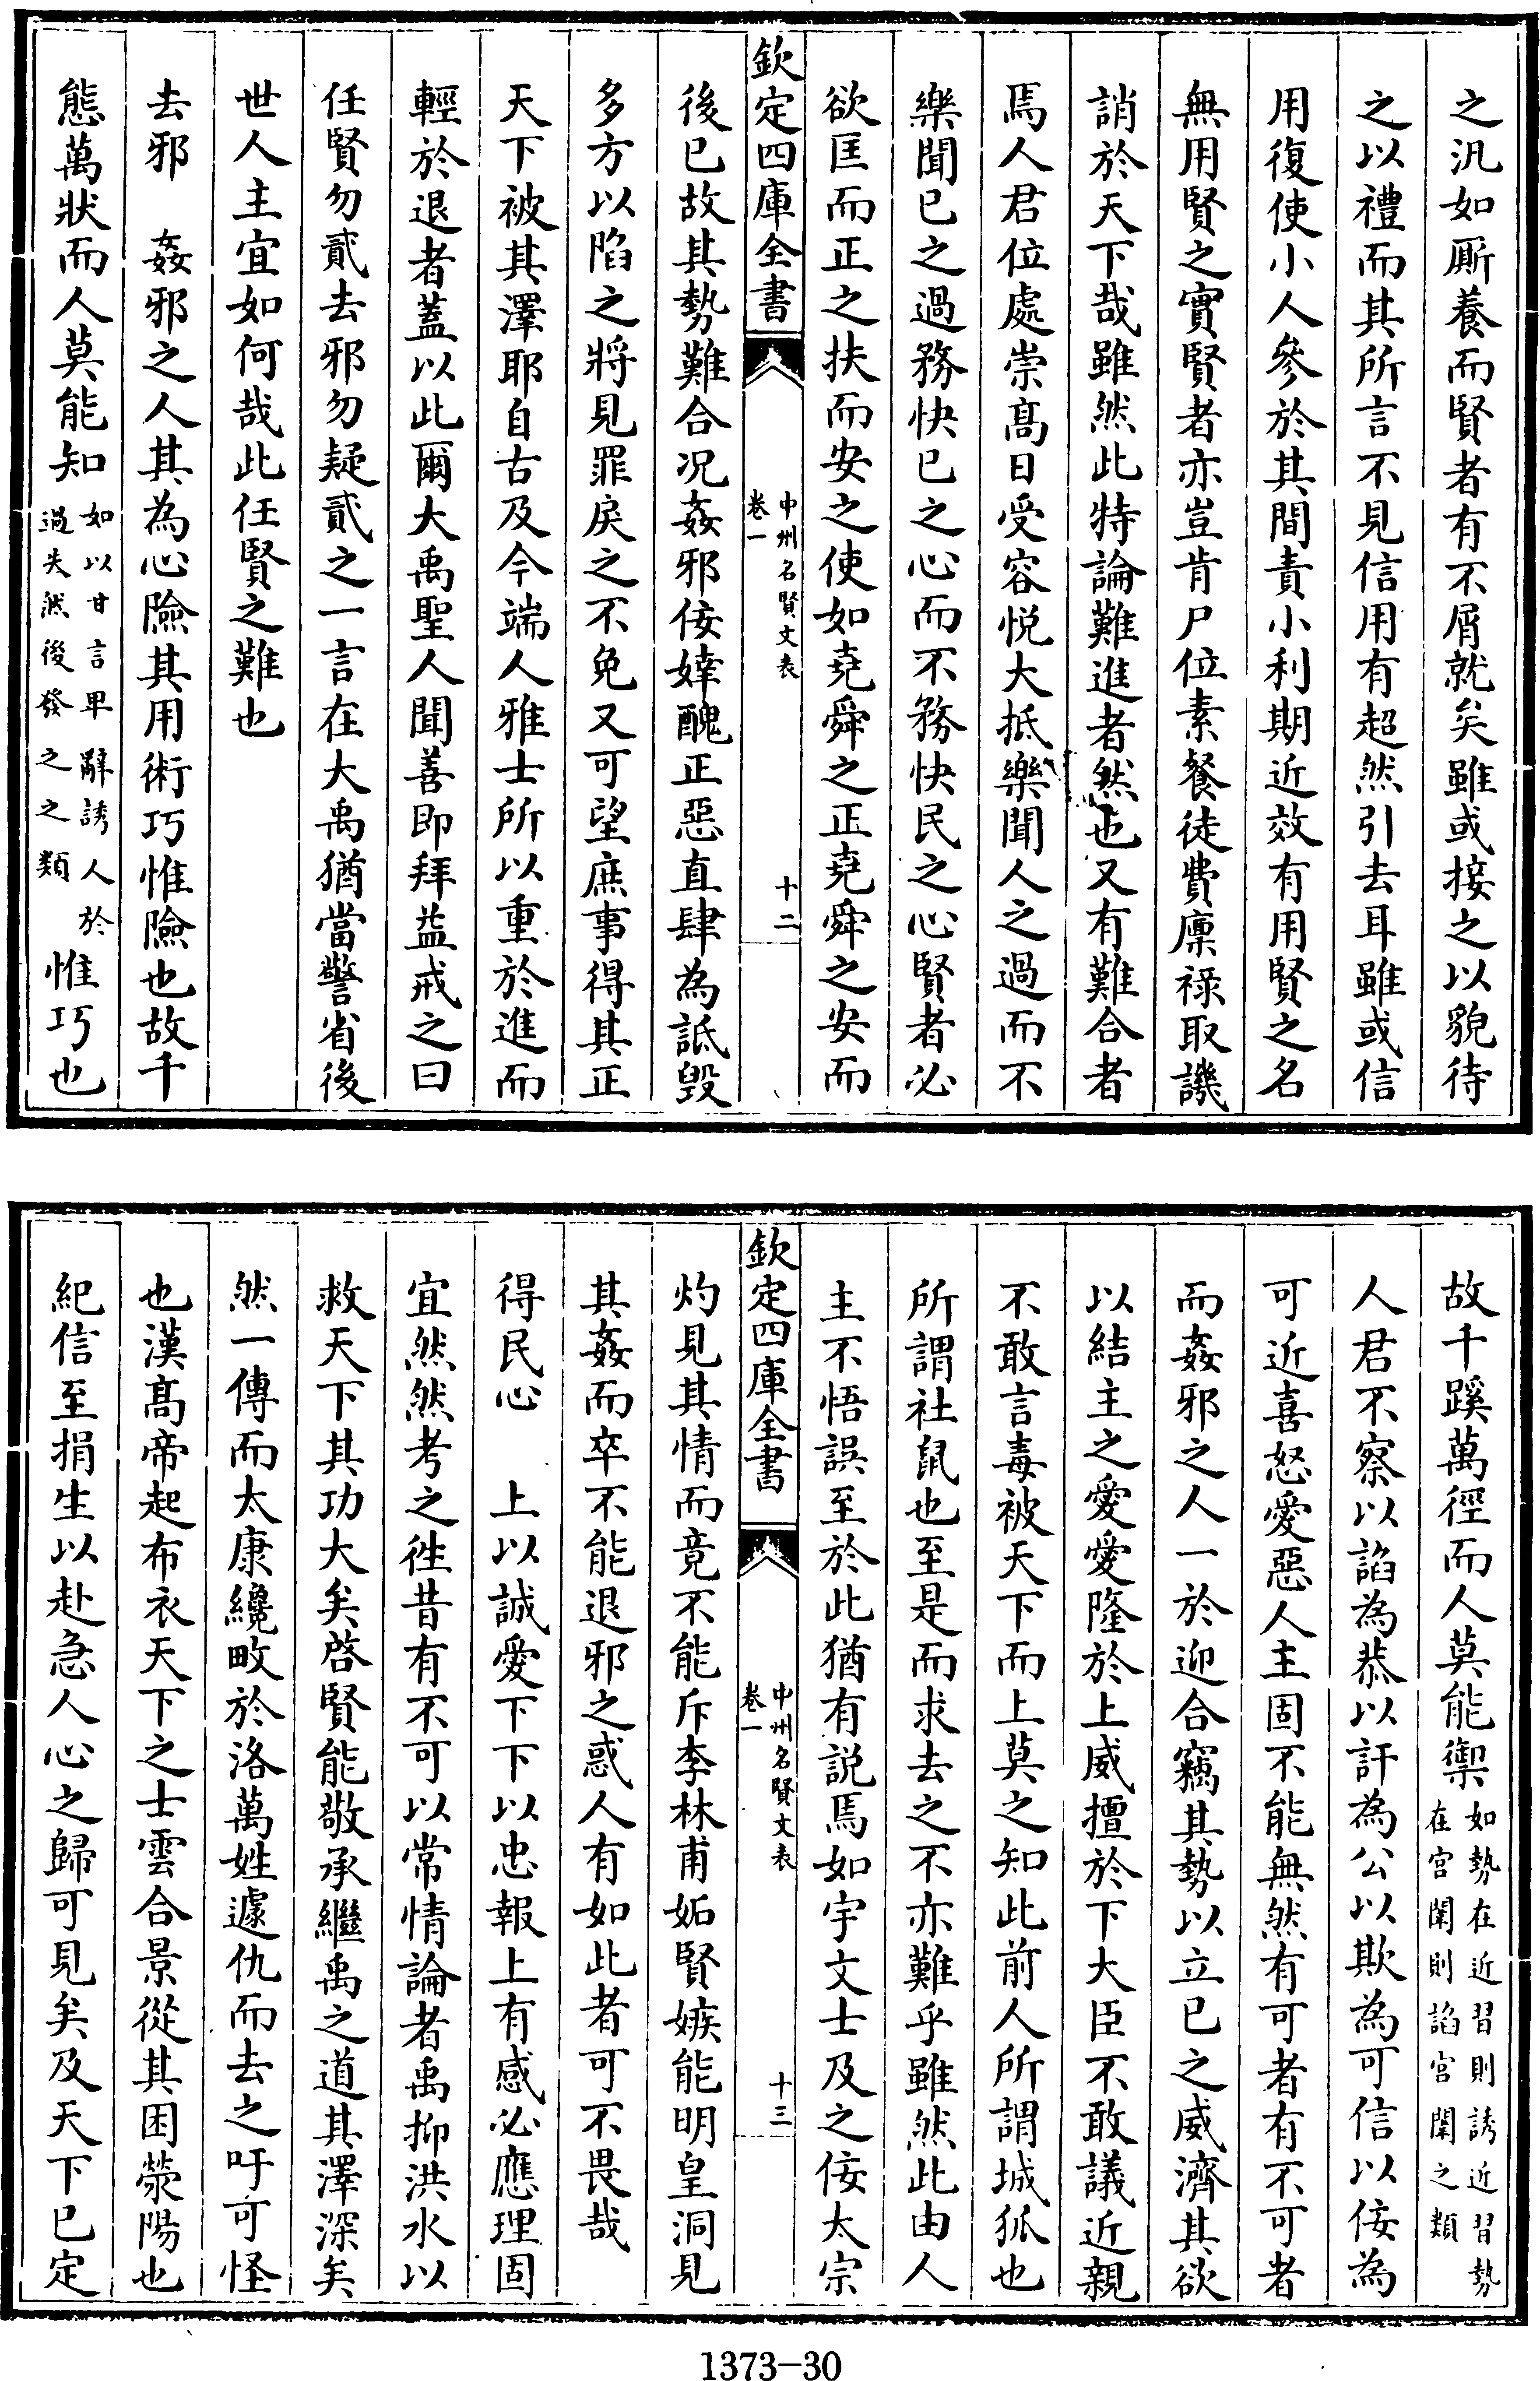 之汎如厮養而賢者有不屑就矣雖或接之以貌待
之以禮而其所言不見信用有超然引去耳雖或信
用復使小人參於其間責小利期近效有用賢之名
無用賢之實賢者亦豈肯尸位素餐徒費廩禄取譏
誚於天下哉雖然此特論難進者然也又有難合者
焉人君位處崇髙日受容悦大抵樂聞人之過而不
樂聞已之過務快已之心而不務快民之心賢者必
欲匡而正之扶而安之使如堯舜之正堯舜之安而
欽定四庫全書
中州名賢文表
卷一
十二
後已故其勢難合况姦邪佞婞醜正惡直肆為詆毁
多方以陷之將見罪戾之不免又可望庶事得其正
天下被其澤耶自古及今端人雅士所以重於進而
輕於退者蓋以此爾大禹聖人聞善即拜益戒之曰
任賢勿貳去邪勿疑貳之一言在大禹猶當警省後
世人主宜如何哉此任賢之難也
去邪　姦邪之人其為心險其用術巧惟險也故千
態萬狀而人莫能知如以甘言卑辭誘人於過失然後發之之類惟巧也
故千蹊萬徑而人莫能禦如勢在近習則誘近習勢在宫闈則諂宫闈之類
人君不察以諂為恭以訐為公以欺為可信以佞為
可近喜怒愛惡人主固不能無然有可者有不可者
而姦邪之人一於迎合竊其勢以立已之威濟其欲
以結主之愛愛隆於上威擅於下大臣不敢議近親
不敢言毒被天下而上莫之知此前人所謂城狐也
所謂社鼠也至是而求去之不亦難乎雖然此由人
主不悟誤至於此猶有説焉如宇文士及之佞太宗
欽定四庫全書
中州名賢文表
卷一
十三
灼見其情而竟不能斥李林甫妬賢嫉能明皇洞見
其姦而卒不能退邪之惑人有如此者可不畏哉
得民心　上以誠愛下下以忠報上有感必應理固
宜然然考之徃昔有不可以常情論者禹抑洪水以
救天下其功大矣啓賢能敬承繼禹之道其澤深矣
然一傳而太康纔畋於洛萬姓遽仇而去之吁可怪
也漢髙帝起布衣天下之士雲合景從其困滎陽也
紀信至捐生以赴急人心之歸可見矣及天下已定
1373-30